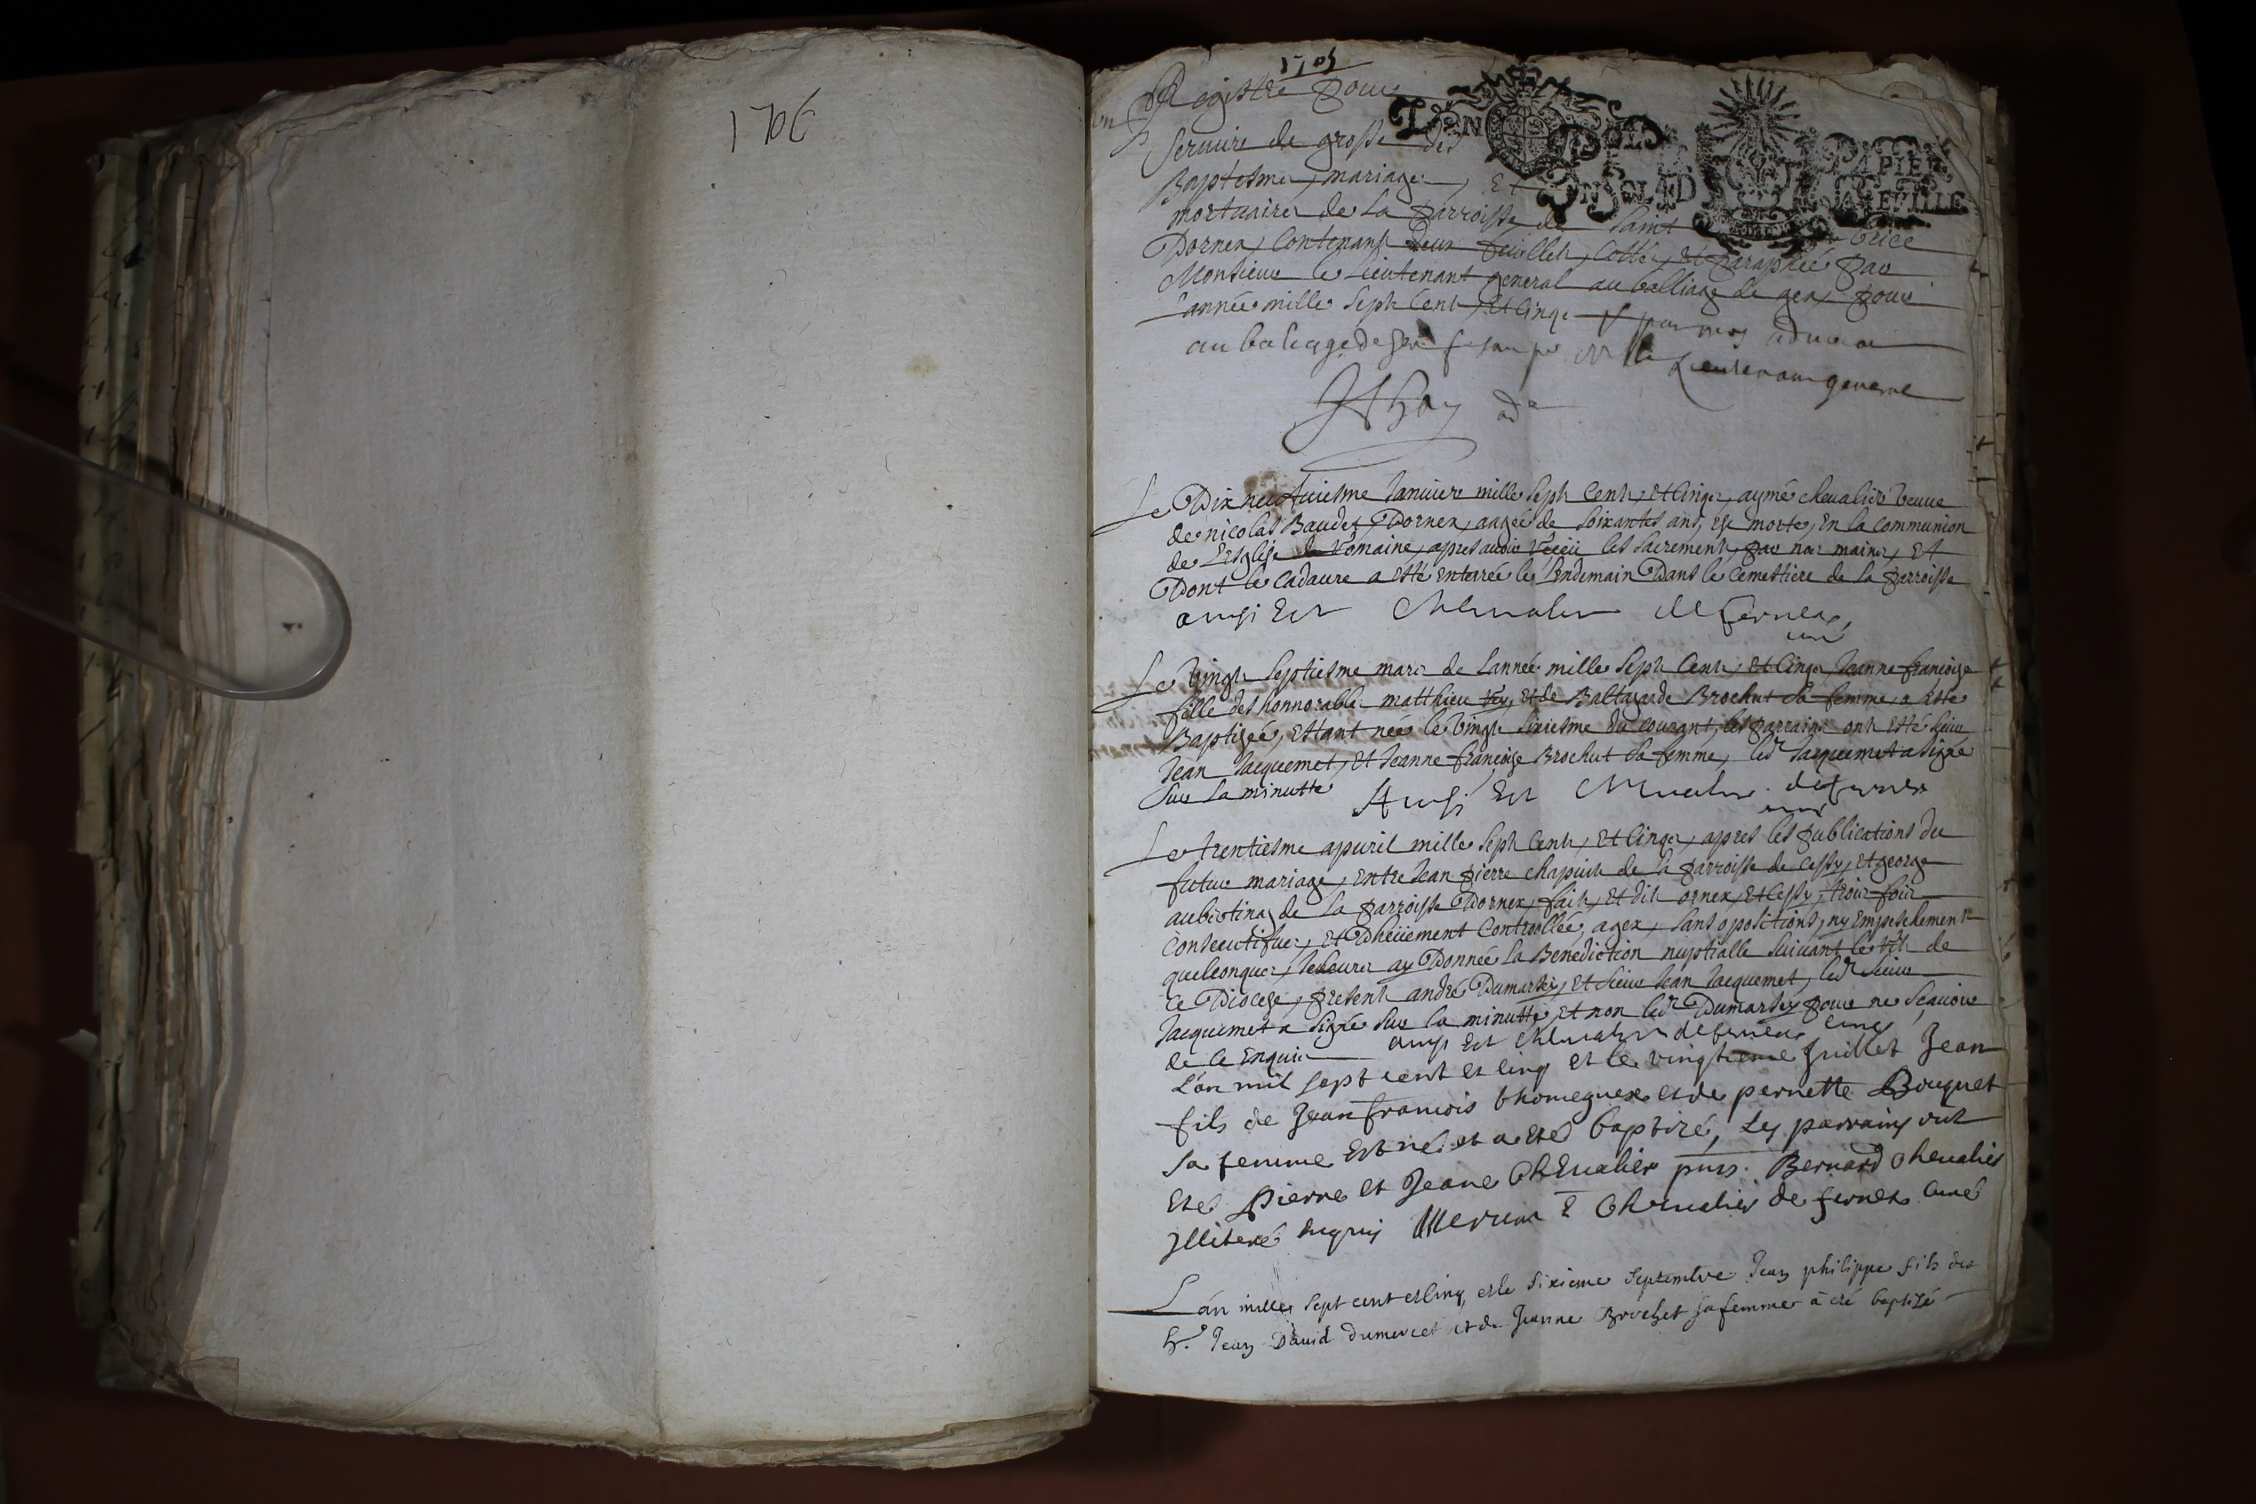 1706
1705
Registre pour
servire de grosse des
Baptesmes, mariages, Et
mortuaires de la parroisse de saint brice
Dornex, Contenant deux feuillets, Cottés, et paraphée par
Monsieur le Lieutenant general au balliage de gex, pour
l'année mille sept Cents, Et Cinqs
au baliage de Gex
Lieutenant general
LYON
PAPIER
Le Dix neufviesme Janvier mille sept Cents, Et Cinqs, aymé chevalier veuve
de nicolas Baudet, Dornex, aagée de soixantes ans, est morte, En la communion
de L'Esglise Romaine, apres avoir Receü les sacrements, par nos mains, Et
Dont le Cadaure a esté enterrée le lendemain Dans le Cemettiere de la parroisse
ainsi Est Chevalier de fernex
curé
Le vingt septiesme mars de L'année mille sept Cents, Et Cinqs, Jeanne françoise
fille des honnorables matthieu et de Baltazarde Brochut sa femme, a Esté
Baptizée, Estant née le vingt sixiesme du courant, les parrains ont Esté sieur
Jean Jacquemet, Et Jeanne françoise Brochut sa femme, led<sup>t</sup> Jacquemet a signé
sur la minutte Ainsi Est Chevalier de fernex
curé
Le trentiesme apuril mille sept Cents, Et Cinqs, apres les publications du
futur mariage, Entre Jean pierre chapuis de la parroisse de Cessy, Et george
de la parroisse Dornex, faits, Et dits ornex, Et Cessy, trois fois
Consecutifues, Et Dheüement Controllée, agex, sans opositions, ny Empeschements
quelconques, Je soubs ay Donnée la Benediction nuptialle suivant le rit de
Ce Diocese, presents andré Dumartey, Et sieur Jean Jacquemet, led<sup>t</sup> sieur
Jacquemet a signé sur la minutte, Et non led<sup>t</sup> Dumartey pour ne scavoir
de Ce Enquis ainsi Est Chevalier de fernex curé
L'an mil sept cent et cinq et le vingtieme Juillet Jean
fils de Jean françois thomegnex et de pernette Bouquet
sa femme Est né et a Eté baptizé, Les parrains ont
Eté Pierre et Jeane Chevalier Bernard Chevalier
Illiteré enquis Chevalier de fernex curé
L'an mille sept cent et cinq, et le sixieme septembre Jean philippe fils de
h.<sup>e</sup> Jean David dumerest et de Jeanne Brochet sa femme à eté baptizé